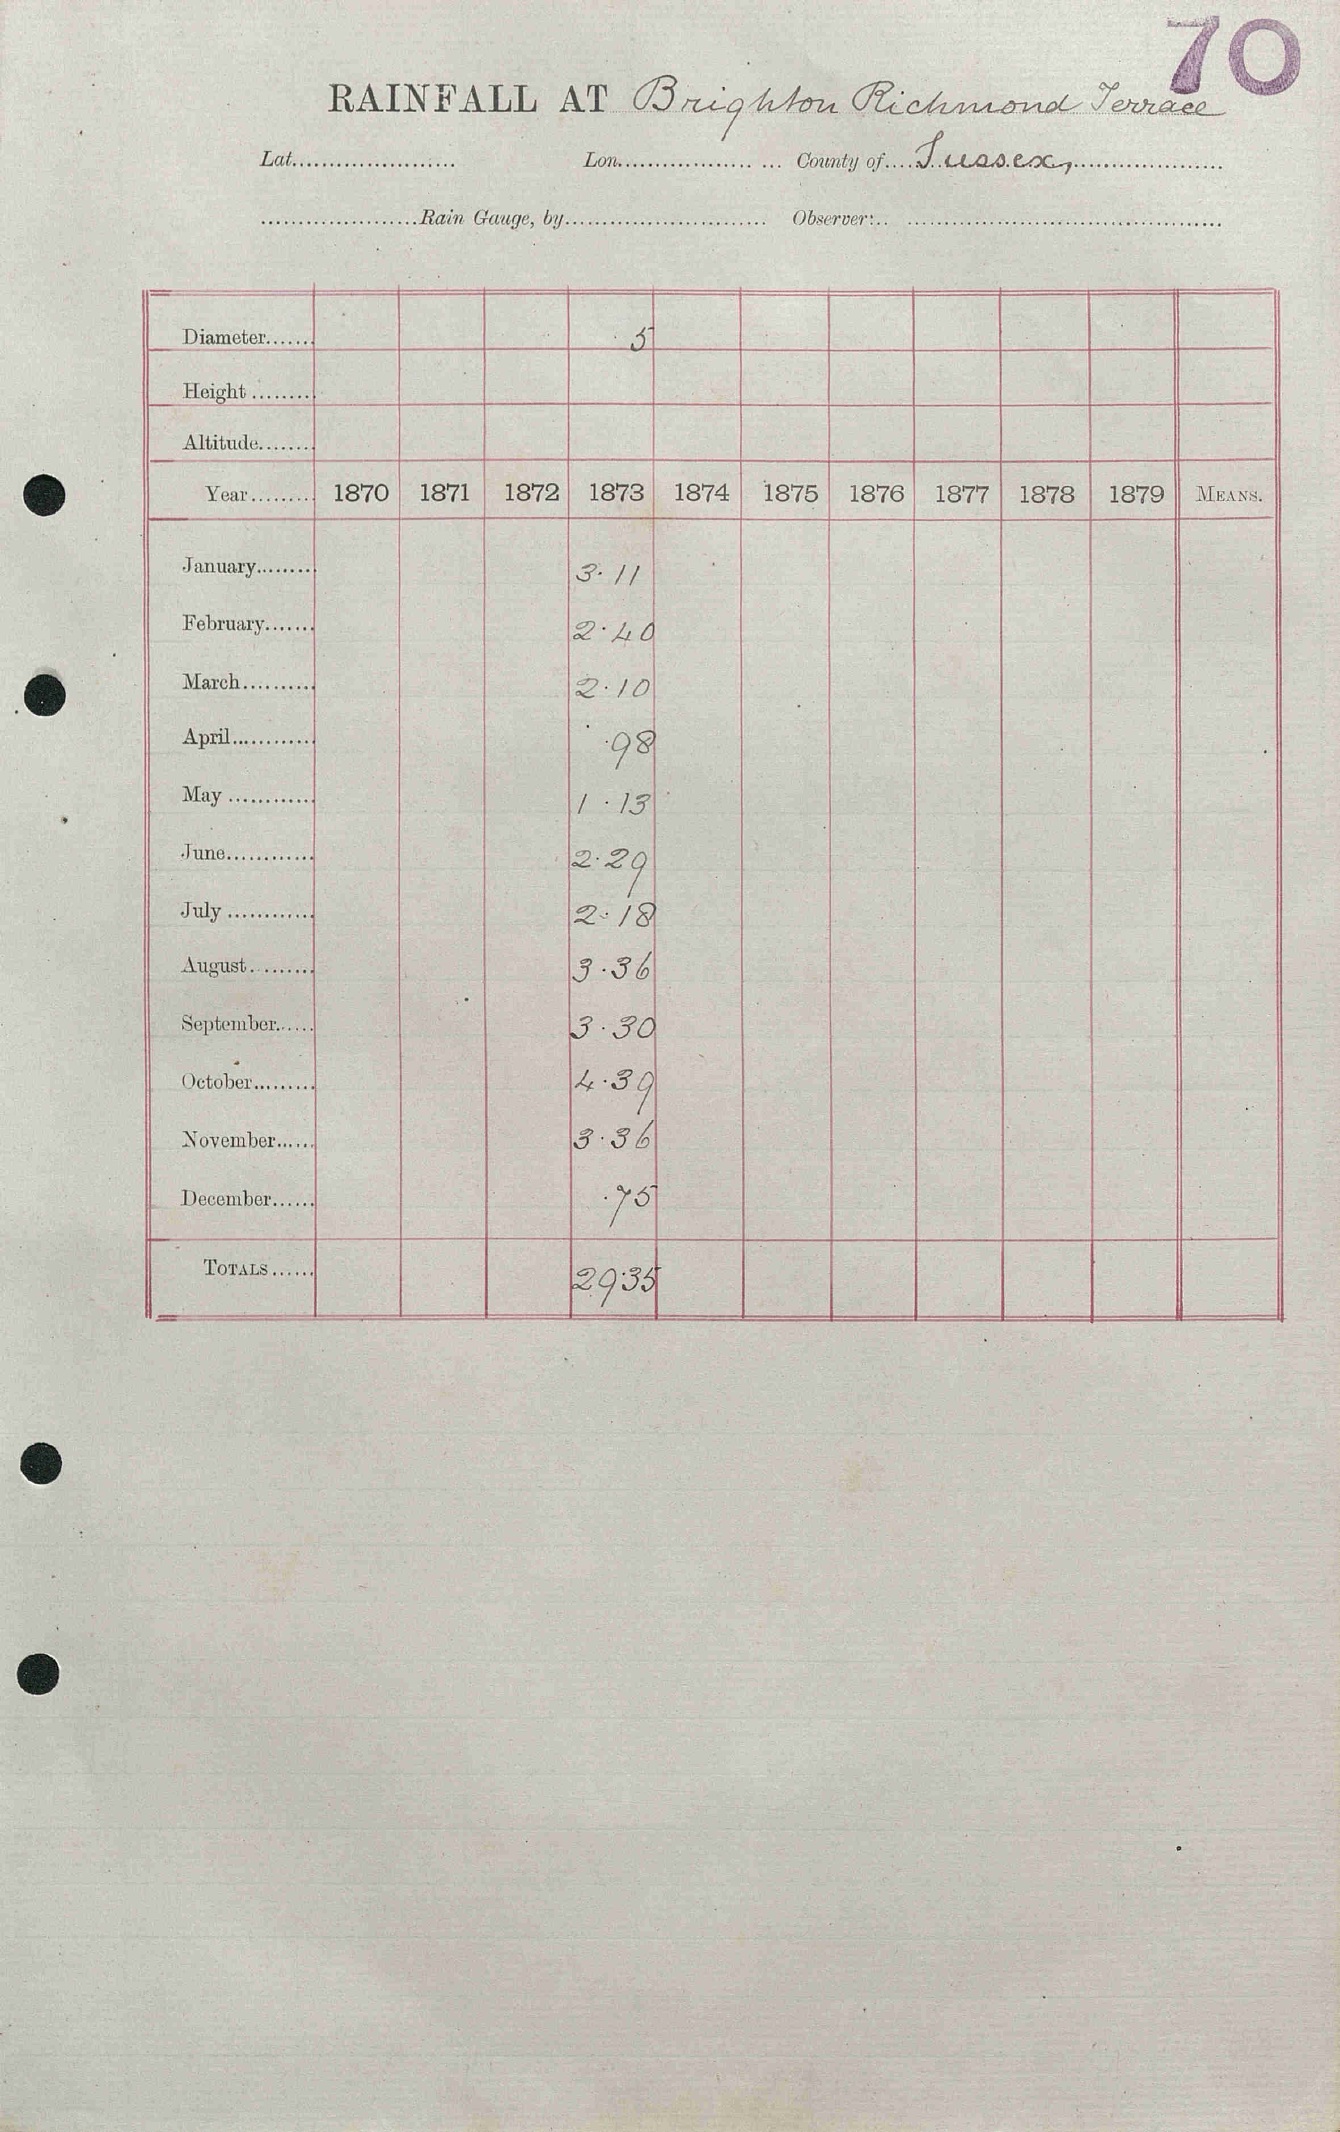 70
RAINFALL AT Brighton Richmond Terrace
Lat...................... Lon...................... County of.... Sussex, ....................
.....................Rain Gauge, by........................... Observer:.. ..........................................
Diameter....... 5
Height .........
Altitude........
Year......... 1870 1871 1872 1873 1874 1875 1876 1877 1878 1879 MEANS.
January........ 3.11
February....... 2.40
March.......... 2.10
April............ .98
May ............ 1.13
June............ 2.29
July ............ 2.18
August.......... 3.36
September...... 3.30
October......... 4.39
November...... 3.36
December...... .75
TOTALS...... 29.35